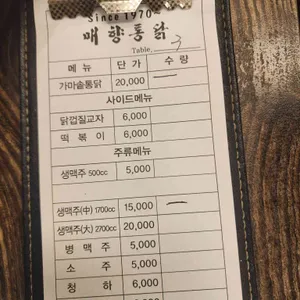 Since 1970
매향통닭
Table. 3
메 뉴 단 가 수 량
가마솥통닭 20,000 一
사이드메뉴
닭껍질교자 6,000
떡 볶 이 6,000
주류메뉴
생맥주 500cc 5,000
생맥주(中) 1700cc 15,000 一
생맥주(大) 2700cc 20,000
병 맥 주 5,000
소 주 5,000
청 하 6,000